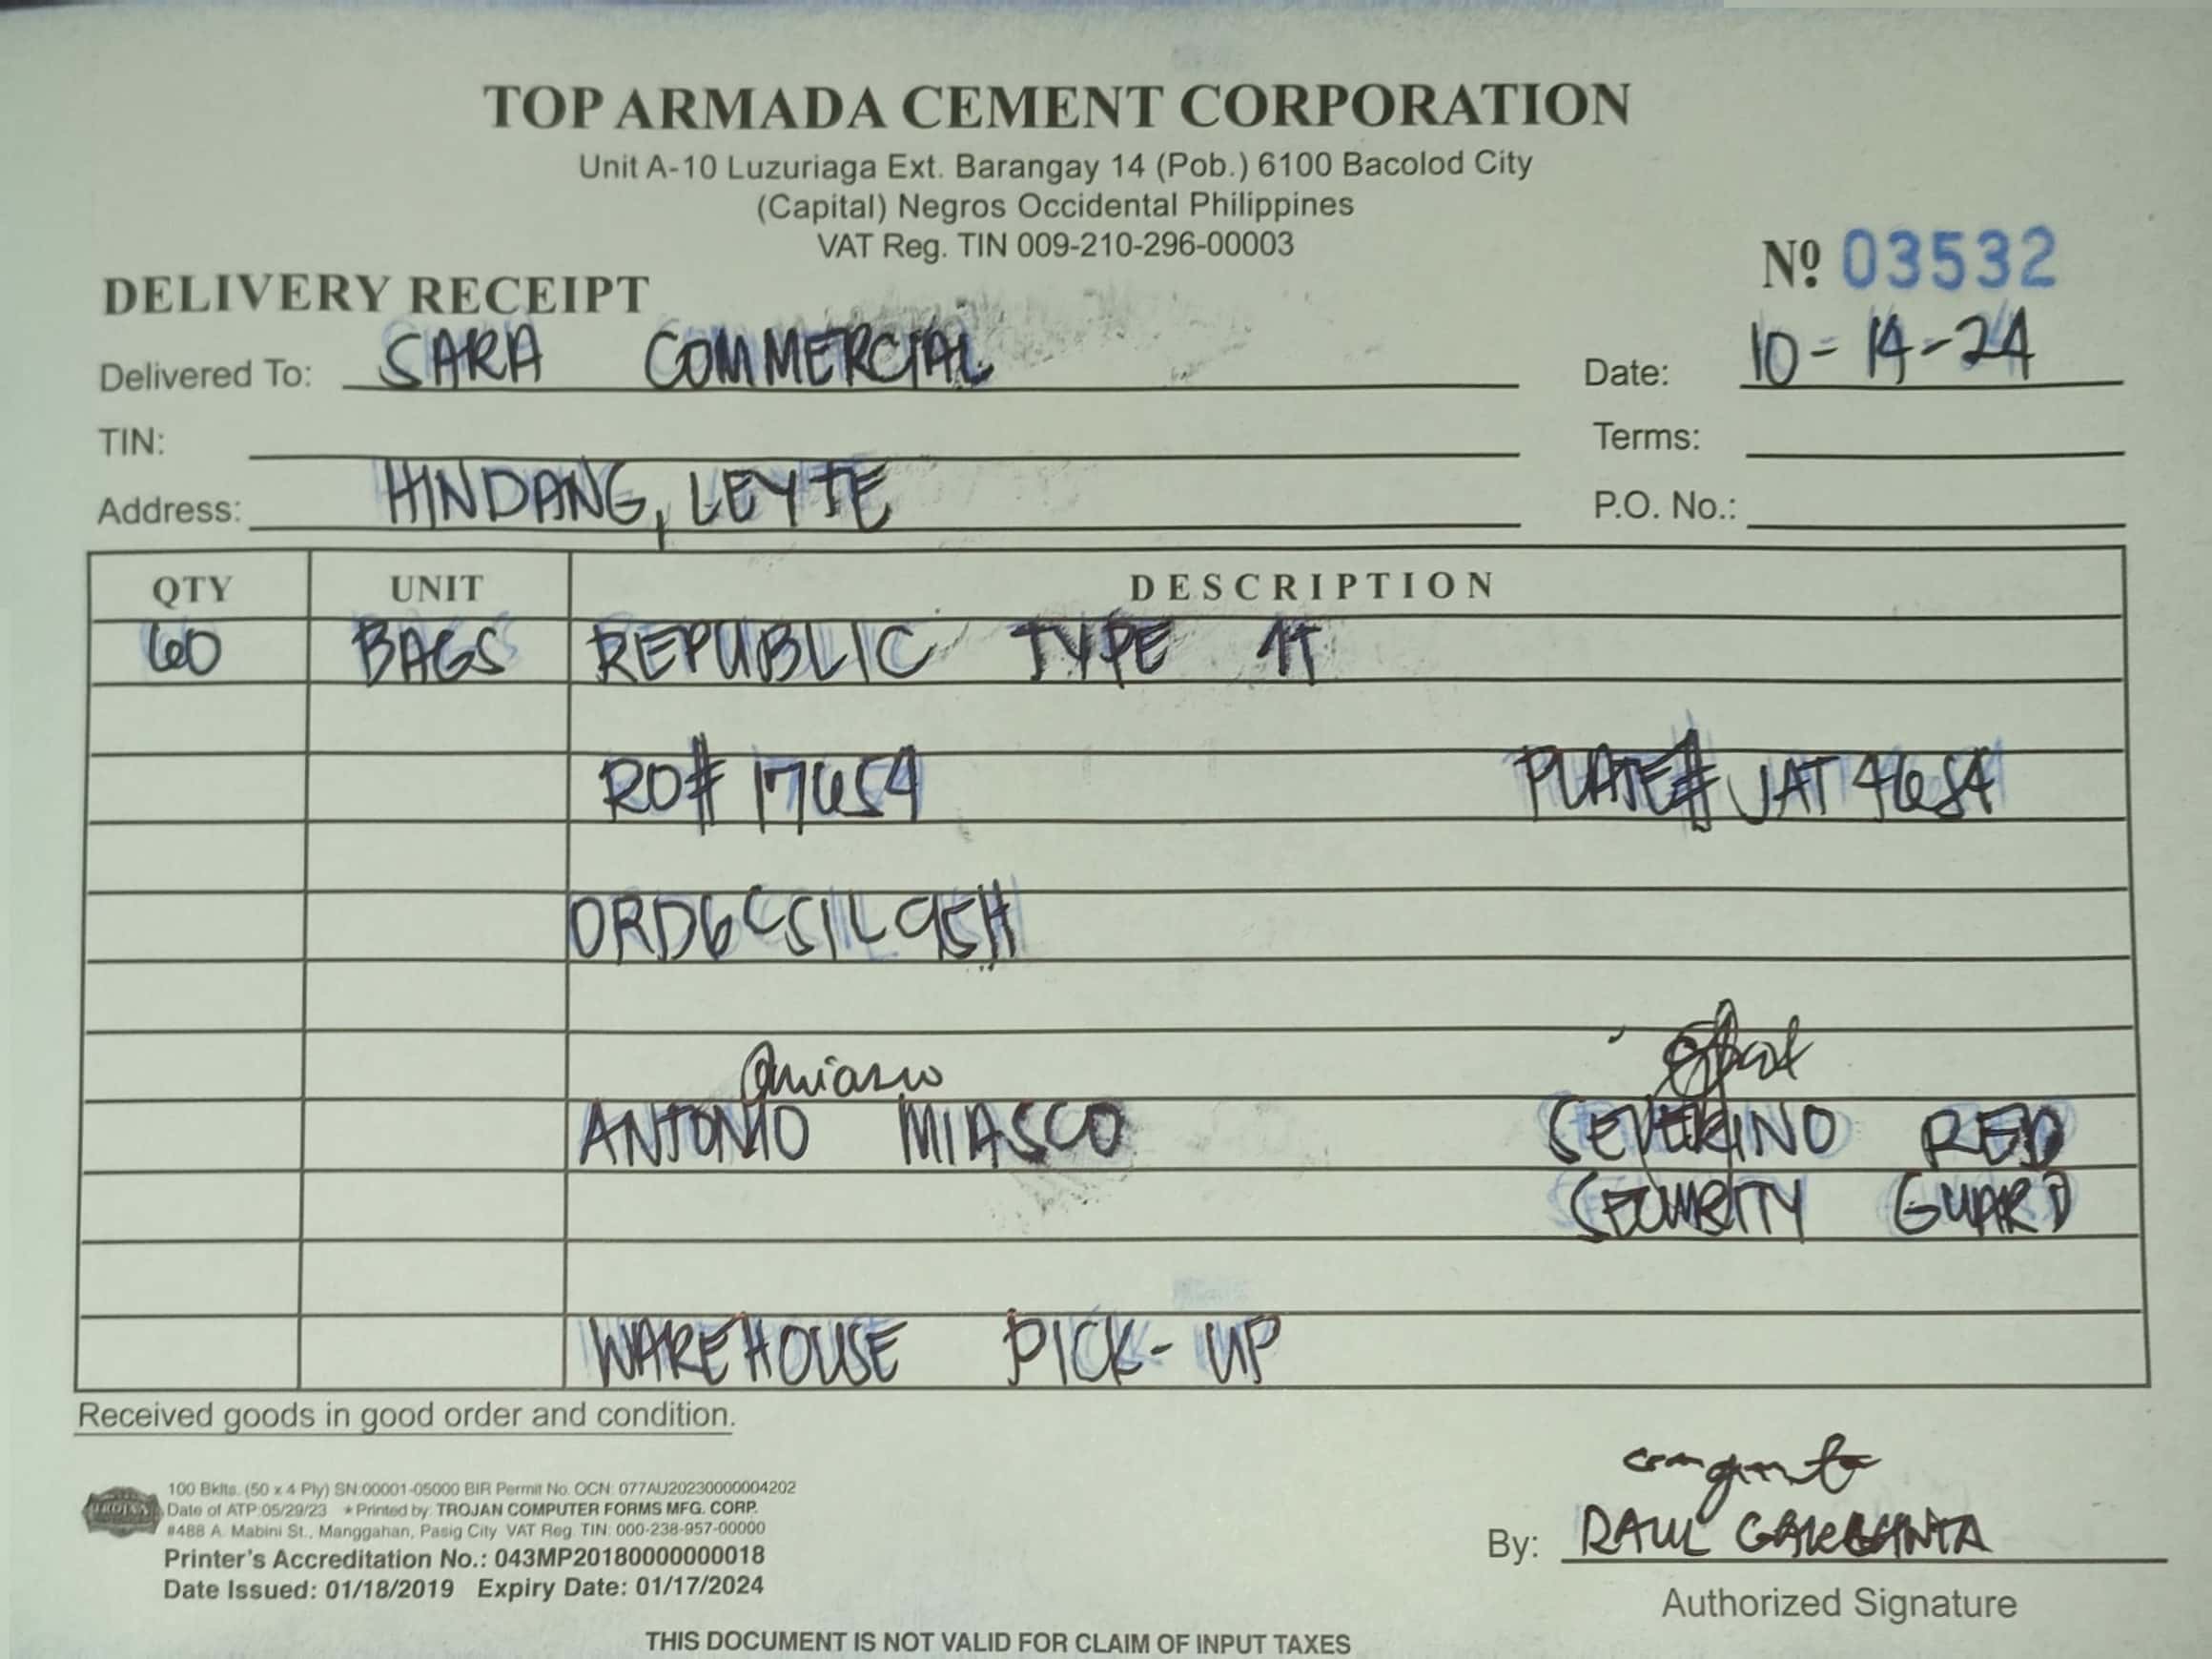 TOP ARMADA CEMENT CORPORATION
Unit A-10 Luzuriaga Ext. Barangay 14 (Pob.) 6100 Bacolod City
(Capital) Negros Occidental Philippines
VAT Reg. TIN 009-210-296-00003
Nº 03532
DELIVERY RECEIPT
Delivered To: SARA COMMERCIAL Date: 10-14-24
TIN: Terms:
Address: HINDANG, LEYTE P.O. No.:
QTY UNIT DESCRIPTION
60 BAGS REPUBLIC TYPE 1T
RO# 17654 PLATE# JAT 4654
ORD6CS1L95H
ANTONIO MIASCO SEVERINO RED
SECURITY GUARD
WAREHOUSE PICK-UP
Received goods in good order and condition.
100 Bklts. (50 x 4 Ply) SN:00001-05000 BIR Permit No. OCN: 077AU20230000004202
Date of ATP:05/29/23 * Printed by: TROJAN COMPUTER FORMS MFG. CORP.
#488 A. Mabini St., Manggahan, Pasig City VAT Reg. TIN: 000-238-957-00000
Printer's Accreditation No.: 043MP20180000000018
Date Issued: 01/18/2019 Expiry Date: 01/17/2024
By: RAUL GARGANTA
Authorized Signature
THIS DOCUMENT IS NOT VALID FOR CLAIM OF INPUT TAXES